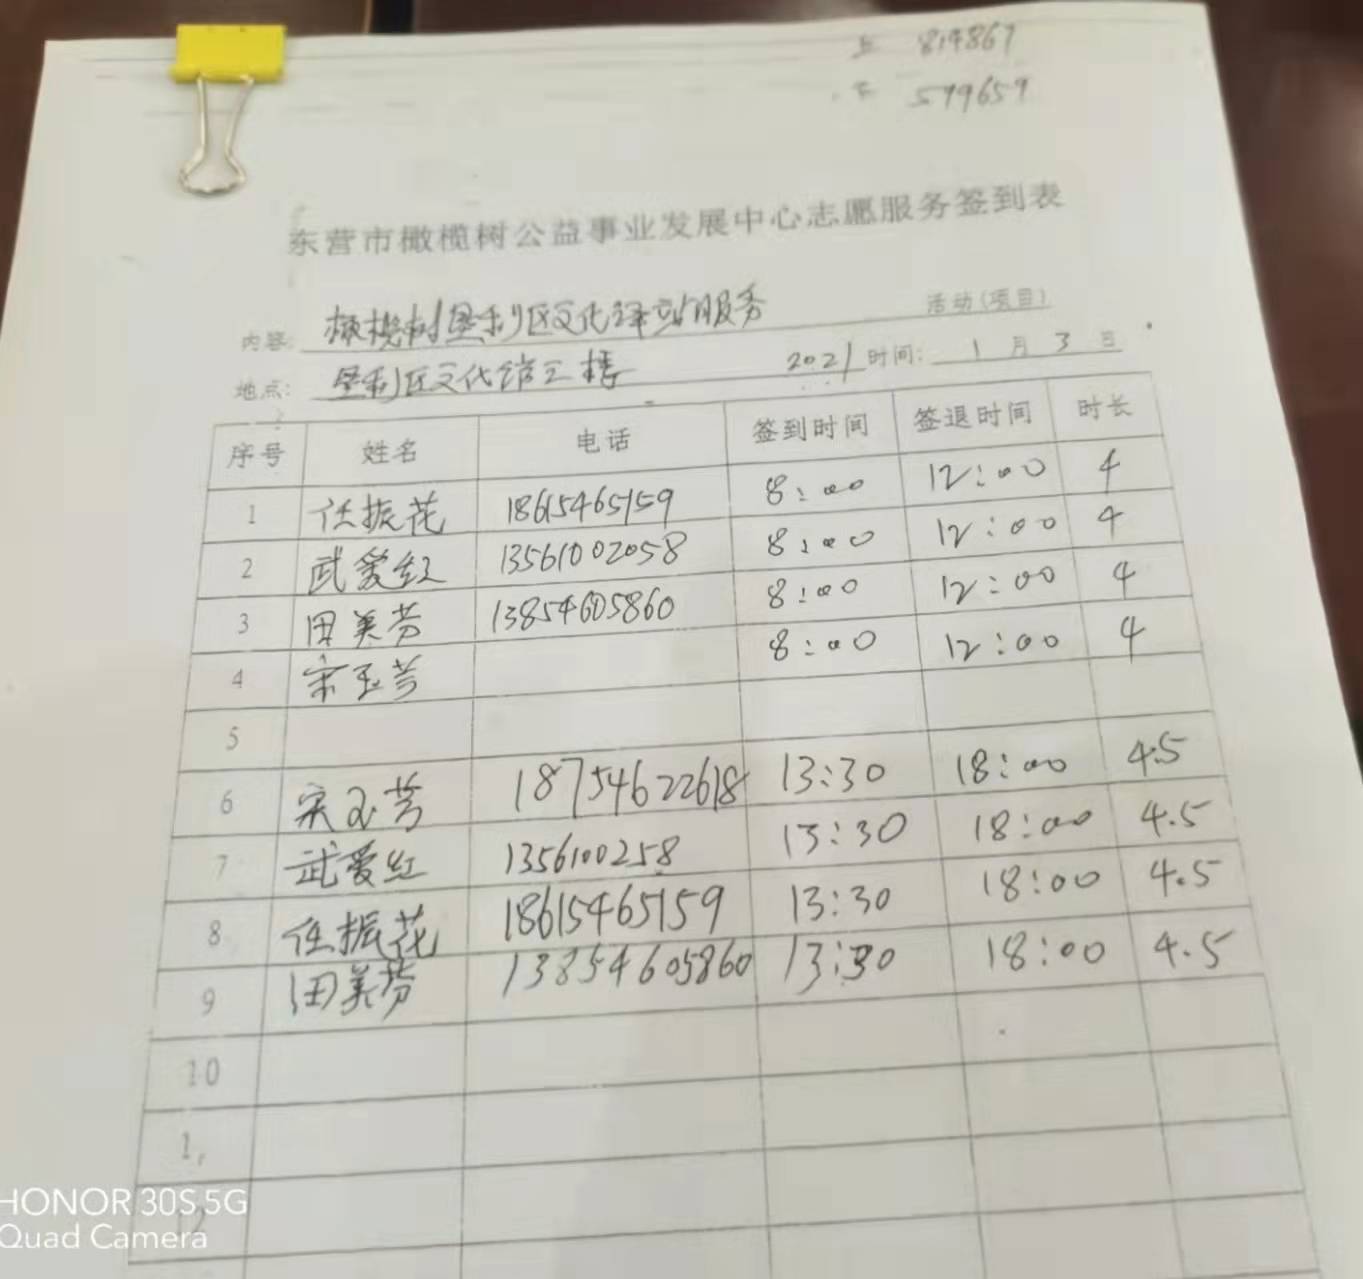 上 819867
下 599659
东营市橄榄树公益事业发展中心志愿服务签到表
内容: 橄榄树垦利区文化驿站服务 活动(项目)
地点: 垦利区文化馆三楼 2021 时间: 1 月 3 日
序号 姓名 电话 签到时间 签退时间 时长
1 任振花 18615465159 8:00 12:00 4
2 武爱红 13561002058 8:00 12:00 4
3 田美芳 13854605860 8:00 12:00 4
4 宋玉芳 8:00 12:00 4
5
6 宋玉芳 18754622618 13:30 18:00 4.5
7 武爱红 1356100258 13:30 18:00 4.5
8 任振花 18615465159 13:30 18:00 4.5
9 田美芳 13854605860 13:30 18:00 4.5
10
1,
12
HONOR 30S 5G
Quad Camera